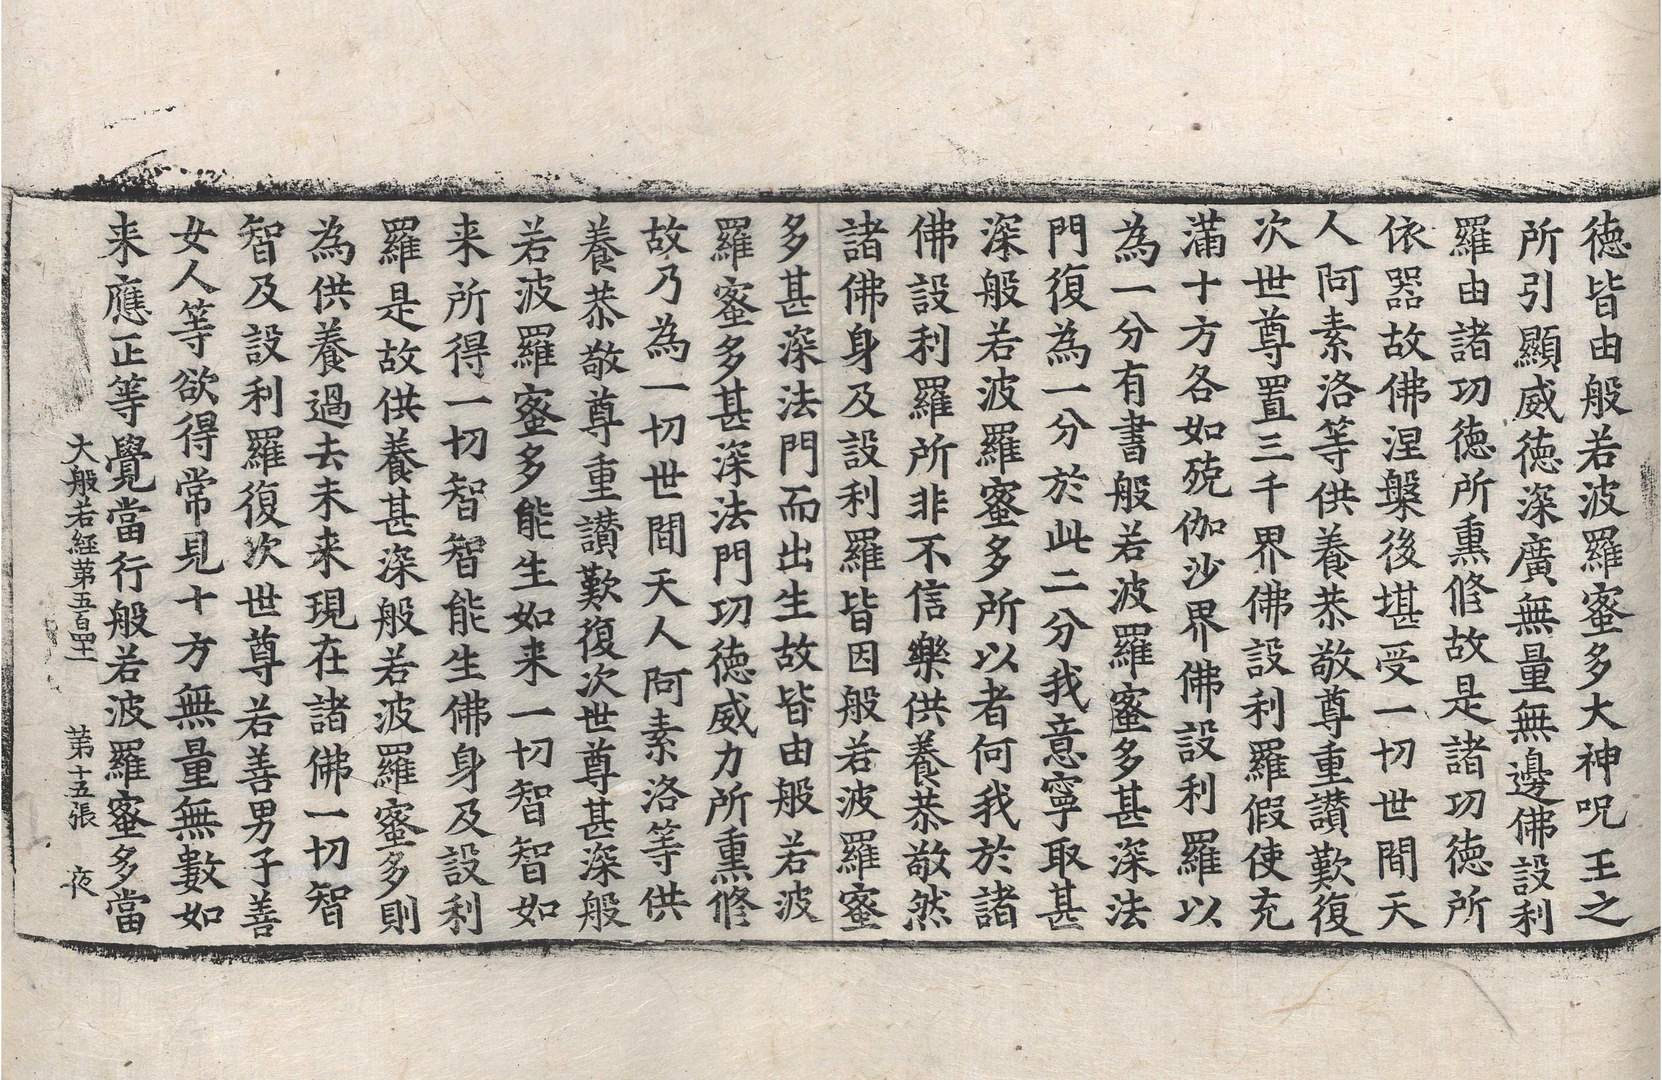 德皆由般若波羅蜜多大神呪王之
所引顯威德深廣無量無邊佛設利
羅由諸功德所熏修故是諸功德所
依器故佛涅槃後堪受一切世間天
人阿素洛等供養恭敬尊重讚歎復
次世尊置三千界佛設利羅假使充
滿十方各如殑伽沙界佛設利羅以
為一分有書般若波羅蜜多甚深法
門復為一分於此二分我意寧取甚
深般若波羅蜜多所以者何我於諸
佛設利羅所非不信樂供養恭敬然
諸佛身及設利羅皆因般若波羅蜜
多甚深法門而出生故皆由般若波
羅蜜多甚深法門功德威力所熏修
故乃為一切世間天人阿素洛等供
養恭敬尊重讚歎復次世尊甚深般
若波羅蜜多能生如来一切智智如
来所得一切智智能生佛身及設利
羅是故供養甚深般若波羅蜜多則
為供養過去未来現在諸佛一切智
智及設利羅復次世尊若善男子善
女人等欲得常見十方無量無數如
来應正等覺當行般若波羅蜜多當
大般若經苐五百四十一 苐十五張 夜